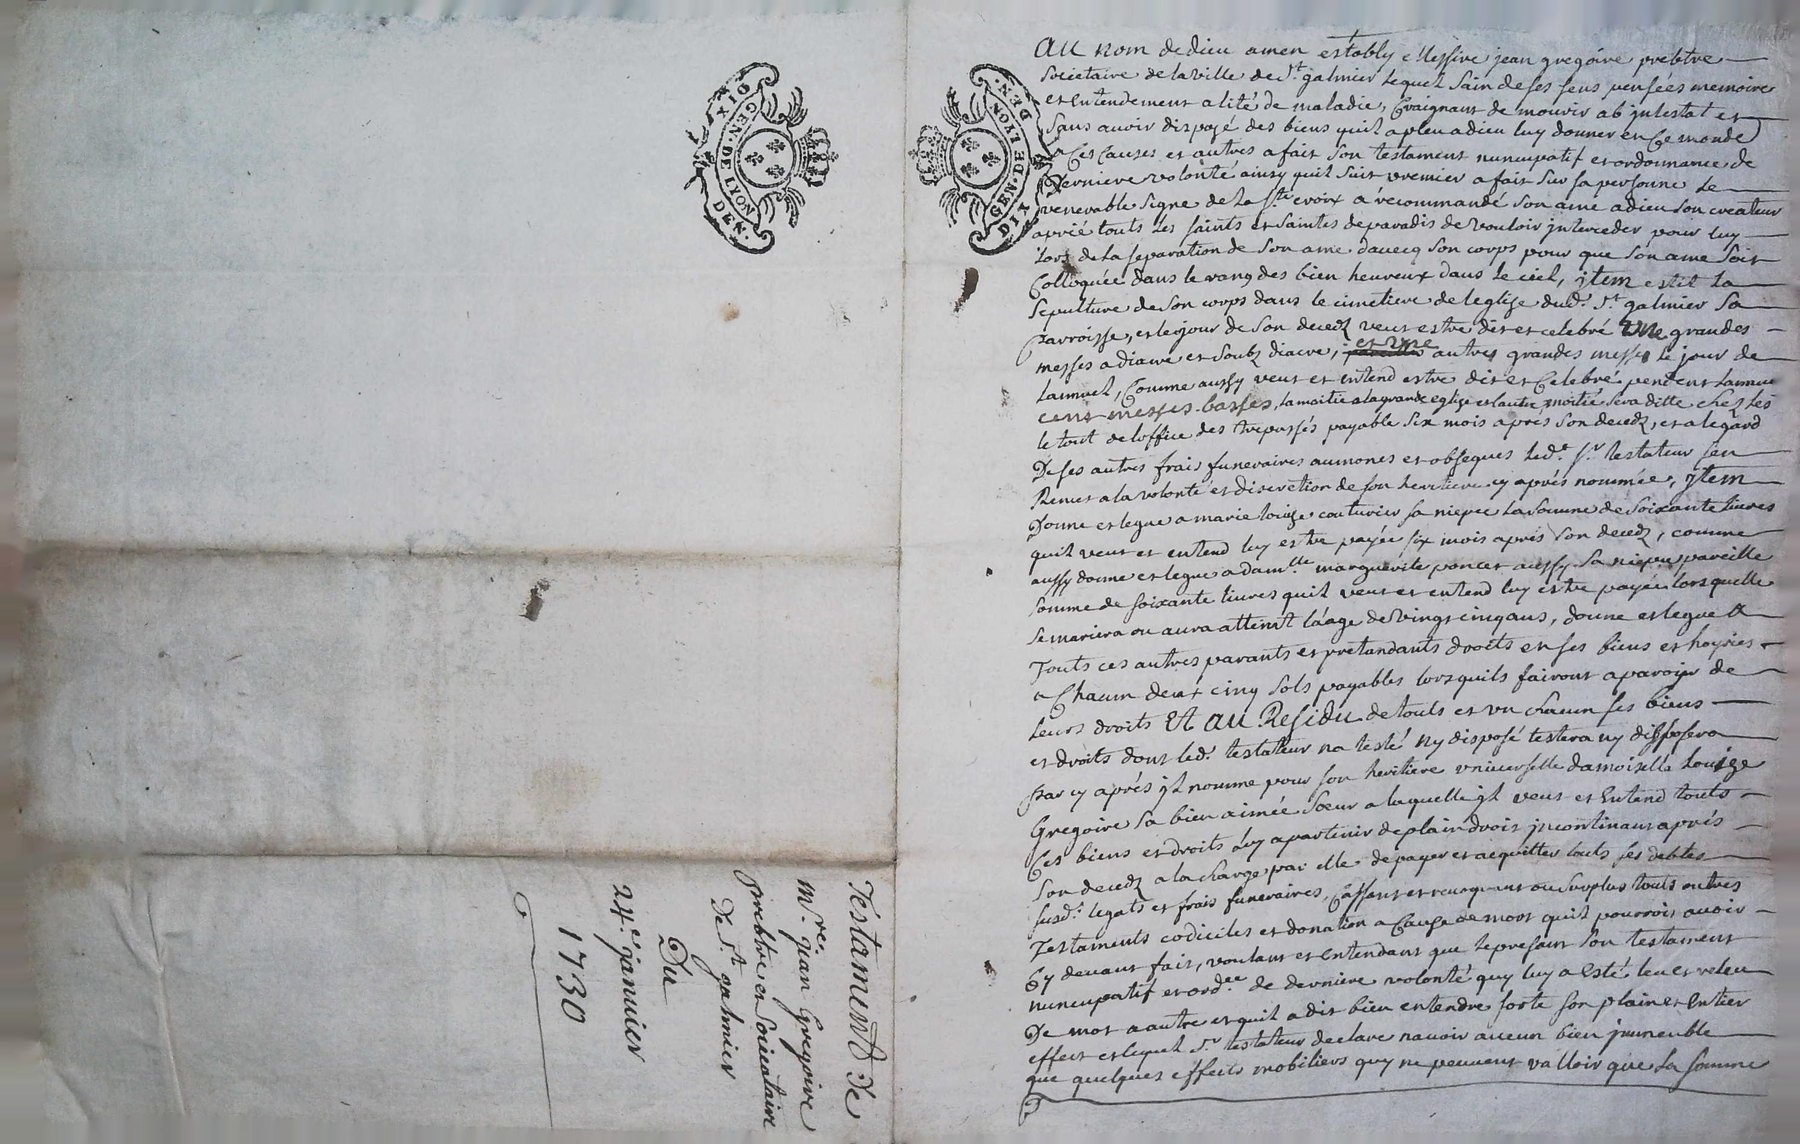 GEN. DE LYON
DIX DEN.
GEN. DE LYON
DIX DEN.
Testament De
Mre. jean Gregoire
prebtre et Societaire
De St galmier
Du
24e. januier
1730
Au nom de dieu amen estably Messire jean gregoire prebtre
Societaire de la ville de St. galmier lequel sain de ses sens pensées memoire
et entendement alité de maladie, Craignant de mourir ab jntestat et
Sans auoir disposé des biens quil a pleu a dieu luy donner en Ce monde
a Ces Causes et autres a fait Son testament nuncupatif et ordonnance de
Derniere volonté ainsy quil suit premier a fait sur sa personne le
venerable Signe de la Ste croix a récommandé Son ame a dieu son createur
a prié touts les saints et Saintes de paradis de vouloir jnterceder pour luy
Lors de la separation de Son ame dauecq Son corps pour que Son ame soit
Colloquée dans le rang des bien heureux dans le ciel, jtem eslit la
Sepulture de Son corps dans le cimetiere de leglise dud. St galmier Sa
parroisse, et le jour de Son decedz veut estre dit et celebré une grandes
messes a diacre et soubz diacre, et une autres grandes messes le jour de
Lannuel, Comme aussy veut et entend estre dit et Celebré pendent Lannuel
cent messes basses, la moitié a la grande eglise et lautre moitié sera ditte chez les
le tout de loffice des trepassés payable Six mois aprés Son decedz, et a legard
De ses autres frais funeraires aumones et obseques led. Sr. testateur sen
Remet a la volonté et discretion de son heritiere cy aprés nommée, jtem
Donne et legue a marie louize couturier sa niepce la Somme de Soixante liures
quil veut et entend luy estre payée six mois aprés Son decedz, comme
aussy donne et legue a damlle marguerite poncet aussy Sa niepce pareille
Somme de soixante liures quil veut et entend luy estre payée lorsquelle
Se mariera ou aura atteint láage de vingt cinq ans, donne et legue a
Touts ces autres parants et pretandants droits en ses biens et hoyries
a Chacun deux cinq Sols payables lorsquils fairont aparoir de
Leurs droits Et au Residu de touts et vn chacun ses biens
et droits dont led. testateur na testé ny disposé testera ny disposera
par cy aprés jl nomme pour son heritiere vniuerselle damoiselle Louize
Gregoire Sa bien aimée Soeur a laquelle jl veut et Entend touts
Ces biens et droits Luy apartenir de plain droit jncontinant aprés
Son decedz a la charge par elle de payer et acquitter touts ses debtes
susd. legats et frais funeraires, Cassant et reuoquant au Surplus touts autres
Testaments codiciles et donation a Cause de mort quil pourroit auoir
Cy deuant fait, voulant et Entendant que le present Son testament
nuncupatif et ordce. de derniere volonté quy luy a Esté leu et releu
De mot a autre et quil a dit bien entendre sorte son plain et Entier
effect et lequel Sr. testateur declare nauoir aucun bien jmmeuble
que quelques effects mobiliers quy ne peuuent valloir que la somme